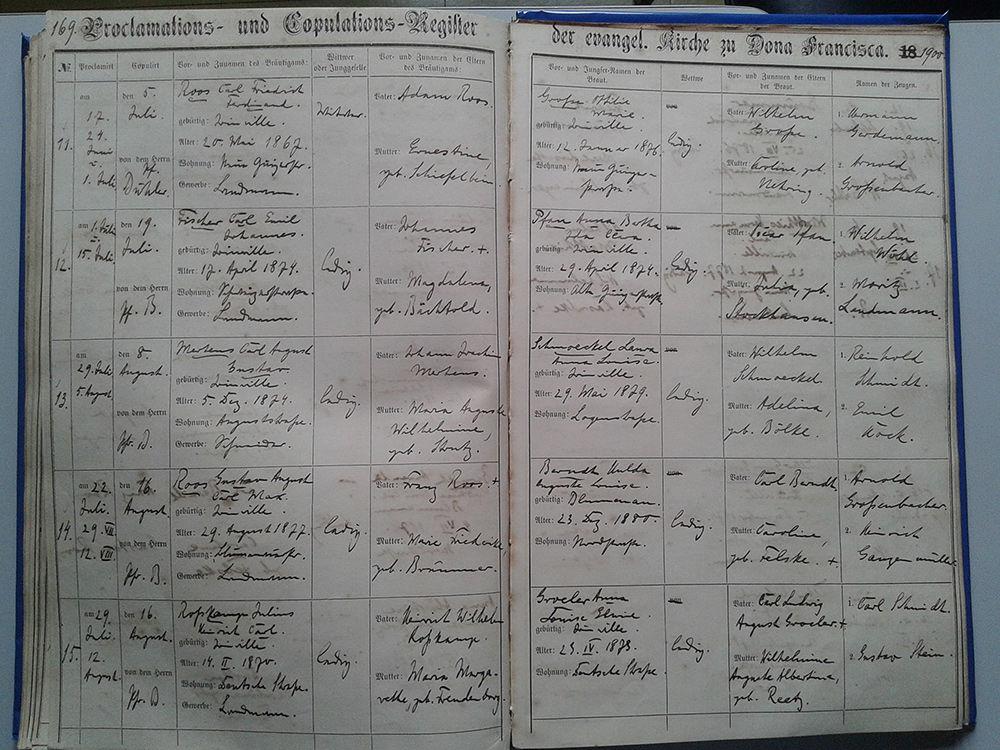 169. Proclamations- und Copulations-Register
der evangel. Kirche zu Dona Francisca. 18 1900
№ Proclamirt Copulirt Vor- und Zunamen des Bräutigams: Wittwer oder Junggeselle Vor- und Zunamen der Eltern des Bräutigams:
Vor- und Jungfer-Namen der Braut. Wittwe Vor- und Zunamen der Eltern der Braut. Namen der Zeugen.
11.
am
17.
24.
Juni
u.
1. Juli
den 5.
Juli.
von dem Herrn
Pf.
Roos Carl Friedrich
Ferdinand.
gebürtig: Joinville.
Alter: 20. Mai 1867.
Wohnung:
Gewerbe: Landmann.
Wittwer.
Vater: Adam Roos.
Mutter: Ernestine,
geb. Schiefelbein
Grosse Ottilie
Marie.
gebürtig: Joinville.
Alter: 12. Januar 1876.
Wohnung:
ledig.
Vater: Wilhelm
Grosse.
Mutter: Caroline geb.
Nehring.
1. Hermann
Gerdemann.
2. Arnold
Grossenbacher.
12.
am 1. Juli
u.
15. Juli.
den 19.
Juli.
von dem Herrn
Pf. B.
Fischer Carl Emil
Johannes.
gebürtig: Joinville.
Alter: 17. April 1874.
Wohnung:
Gewerbe: Landmann.
ledig.
Vater: Johannes
Fischer. +
Mutter: Magdalena,
geb. Bächtold.
Pfau Anna Bertha
gebürtig: Joinville.
Alter: 29. April 1874.
Wohnung: Alte
ledig.
Vater: Pfau.
Mutter: Julia, geb.
Stockhausen.
1. Wilhelm
2. Moritz
Landmann.
13.
am
29. Juli
5. August
den 8.
August.
von dem Herrn
Pfr. B.
Mertens Carl August
Gustav
gebürtig: Joinville.
Alter: 5. Dez. 1874.
Wohnung: Auguststrasse.
Gewerbe: Schneider.
ledig.
Vater: Johann Joachim
Mertens.
Mutter: Maria Auguste
Wilhelmine,
geb.
Schmoeckel Laura
Anna Louise.
gebürtig: Joinville.
Alter: 29. Mai 1879.
Wohnung: Logenstrasse.
ledig.
Vater: Wilhelm
Schmoeckel.
Mutter: Adelina,
geb. Bölke.
1. Reinhold
Schmidt.
2. Emil
Köck.
14.
am 22.
Juli.
29. VII
12. VIII
den 16.
August.
von dem Herrn
Pfr. B.
Roos Gustav August
Carl Max.
gebürtig: Joinville.
Alter: 29. August 1877.
Wohnung:
Gewerbe: Landmann.
ledig.
Vater: Franz Roos. +
Mutter: Marie Friederike,
geb. Brümmer.
Berndt Hulda
Auguste Louise.
gebürtig: Blumenau.
Alter: 23. Dez. 1880.
Wohnung: Nordstrasse.
ledig.
Vater: Carl Berndt.
Mutter: Caroline,
geb. Felske. +
1. Arnold
Grossenbacher.
2. Heinrich
Gangenmüller.
15.
am 29.
Juli.
12.
August.
den 16.
August.
von dem Herrn
Pfr. B.
Rosskamp Julius
Heinrich Carl.
gebürtig: Joinville.
Alter: 14. II. 1870.
Wohnung: Deutsche Strasse.
Gewerbe: Landmann.
ledig.
Vater: Heinrich Wilhelm
Rosskamp.
Mutter: Maria Marga-
rethe, geb. Freudenberg.
Groeler Anna
Louise
gebürtig: Joinville.
Alter: 23. IV. 1873.
Wohnung: Deutsche Strasse.
ledig.
Vater: Carl Ludwig
August Groeler. +
Mutter: Wilhelmine
Auguste Albertina,
geb. Reetz.
1. Carl Schmidt.
2. Gustav Stein.